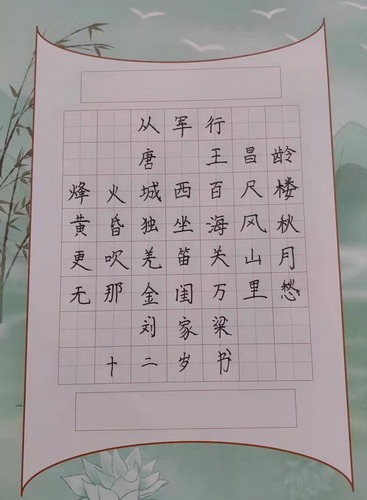 从军行
唐 王昌龄
烽火城西百尺楼
黄昏独坐海风秋
更吹羌笛关山月
无那金闺万里愁
刘家梁
十二岁书